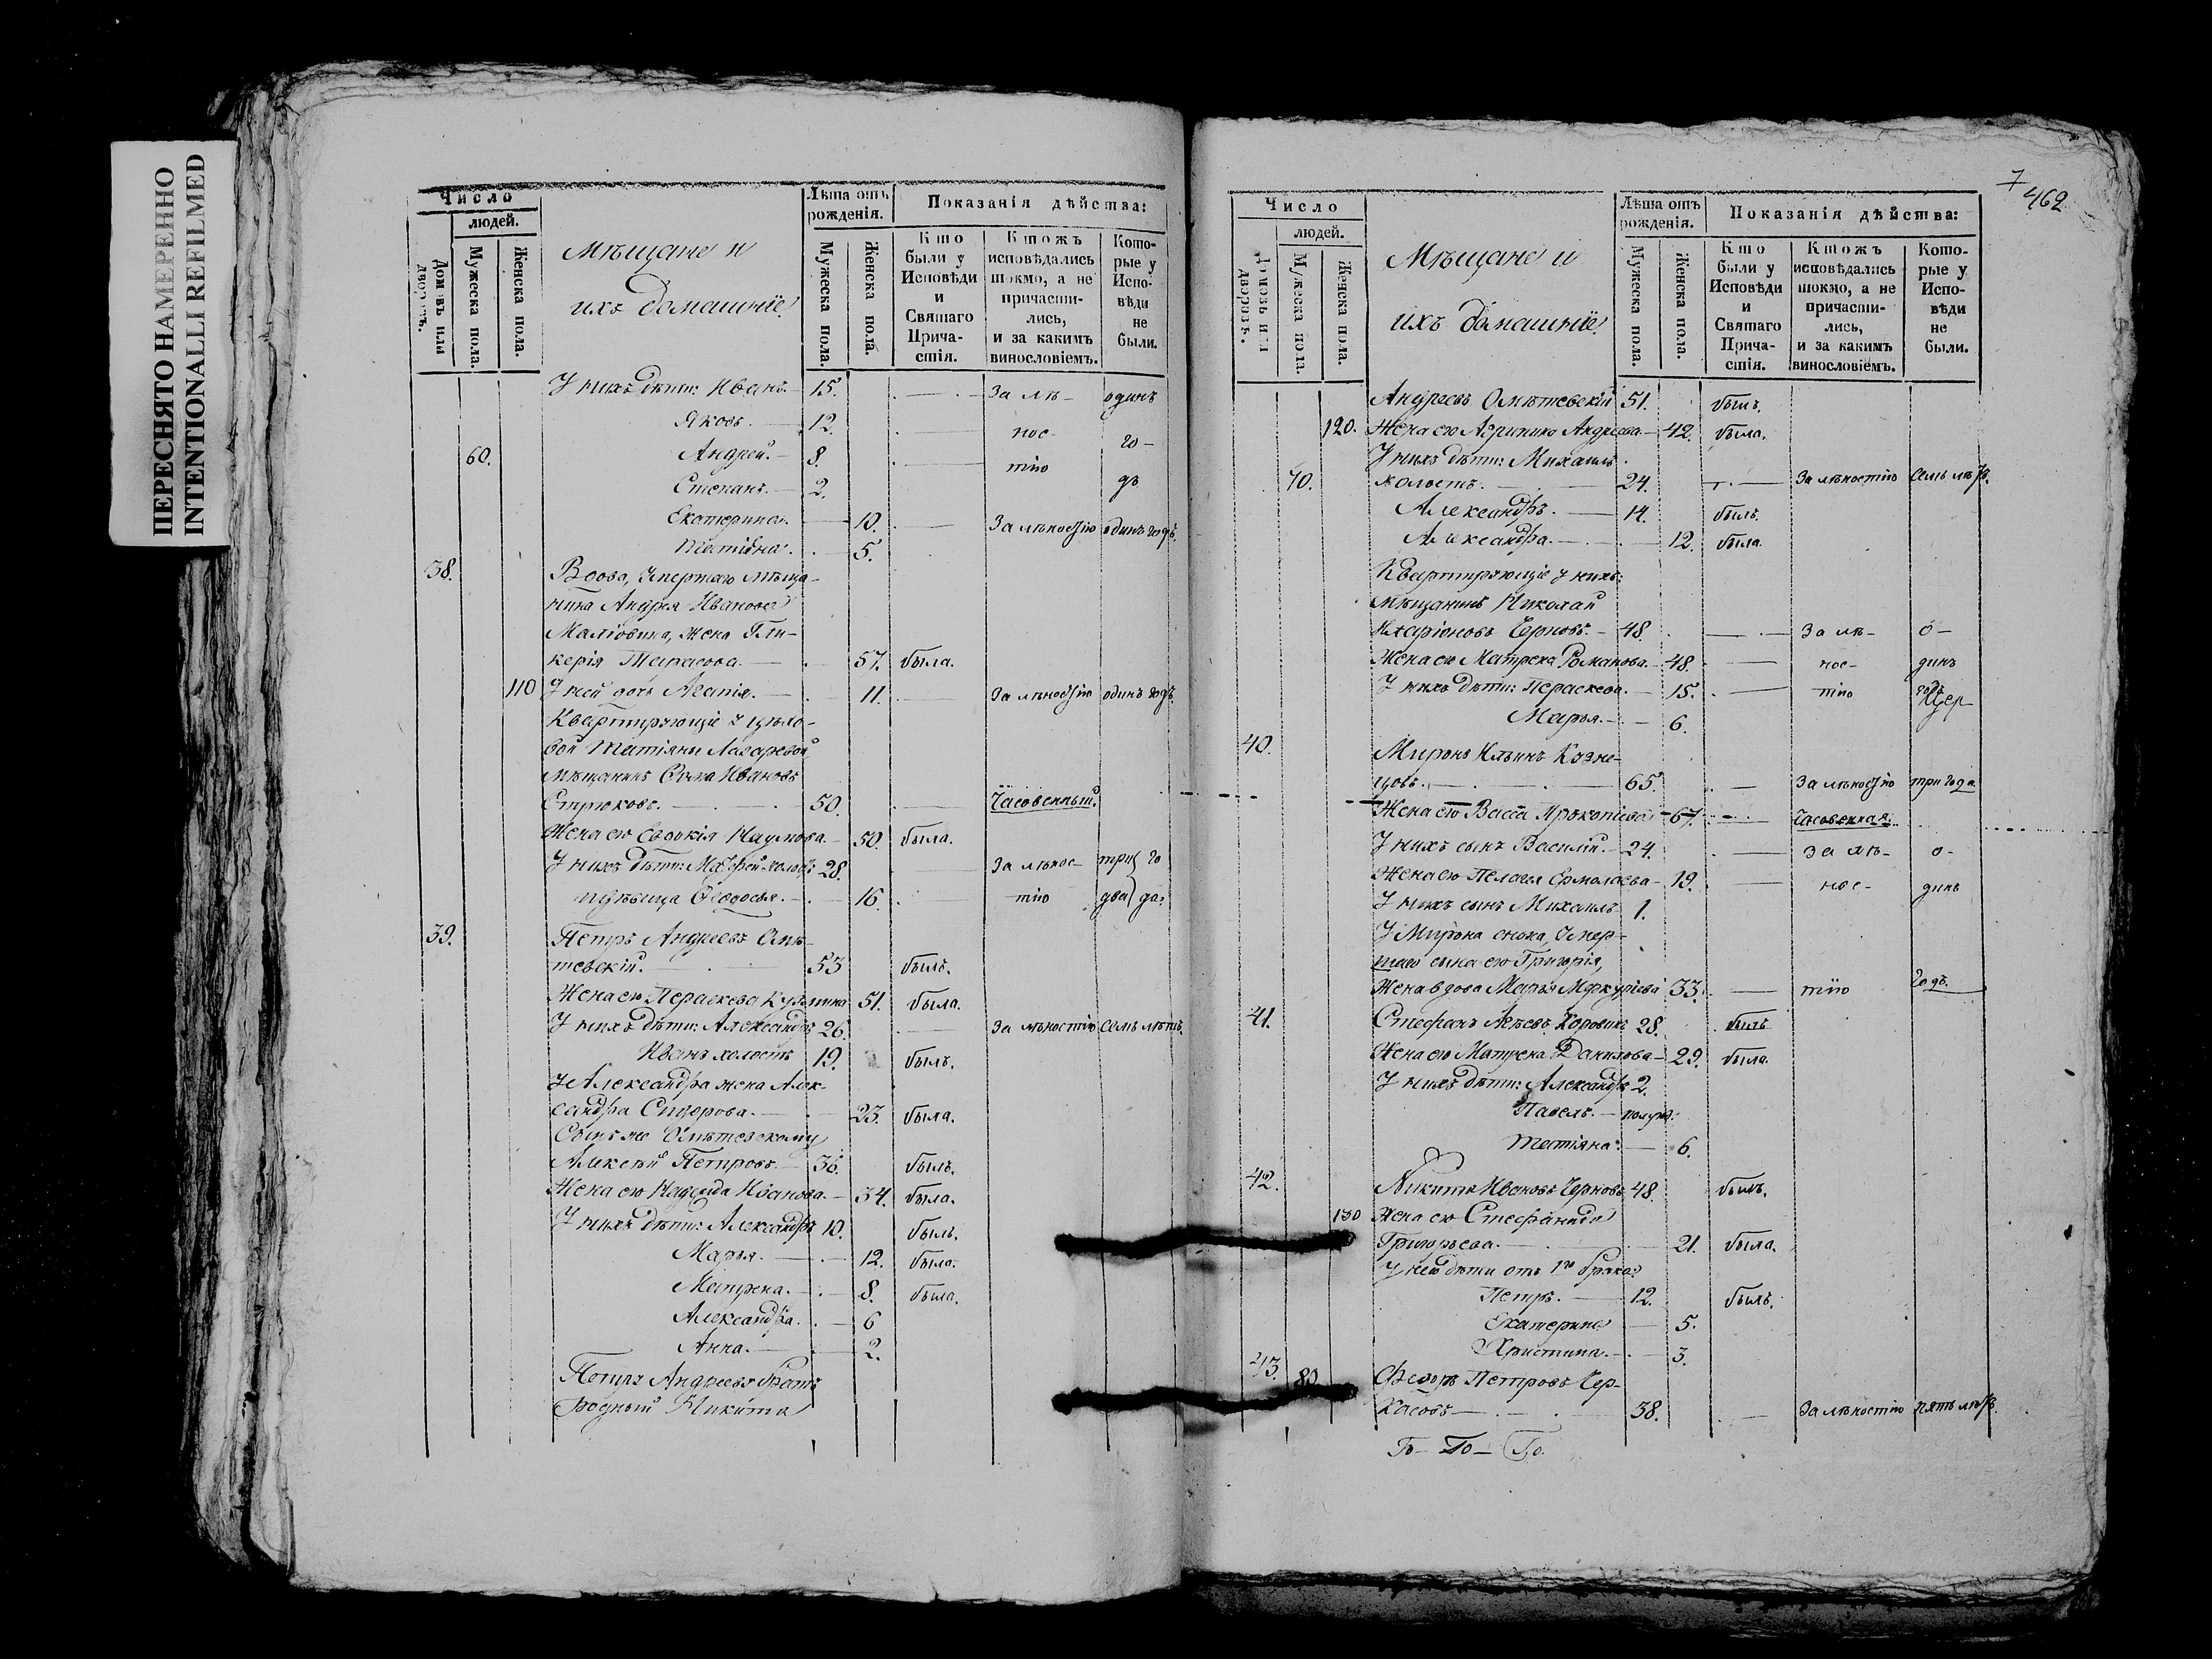 ПЕРЕСНЯТО НАМЕРЕННО
INTENTIONALLI REFILMED
Число
людей.
Домовъ или дворовъ.
Мужеска пола.
Женска пола.
Мѣщане и
ихъ домашніе
Лѣта отъ рожденія.
Мужеска пола.
Женска пола.
Показанія дѣйства:
Кто были у Исповѣди и Святаго Причастія.
Ктожъ исповѣдались токмо, а не причастились, и за какимъ винословіемъ.
Которые у Исповѣди не были.
У нихъ дѣти: Иванъ. 15. За лѣ- одинъ
Яковъ. 12. нос- го-
60. Андрей. 8. тію дъ
Степанъ. 2.
Екатерина. 10. За лѣностію одинъ годъ.
Татіана. 5.
38. Вдова, умершаго мѣща-
нина Андрея Иванова
жена Гли-
керія Тарасова. 57. была.
110 У ней дочь Агапія. 11. За лѣностію одинъ годъ.
Квартирующіе у
Татіяны Лазаревой,
мѣщанинъ Ѳома Ивановъ
Стрюковъ. 50. Часовенный.
Жена его Евдокія Наумова. 50. была.
У нихъ дѣти: 28. За лѣнос- три го
дѣвица Ѳеодосья. 16. тію два да.
39. Петръ Андреевъ Омѣ-
тевскій. 53 былъ.
Жена его Параскева Кузмина 51. была.
У нихъ дѣти: Александръ 26. За лѣностію семь лѣтъ.
Иванъ холостъ 19. былъ.
У Александра жена Алек-
сандра Сидорова. 23. была.
Сынъ же Омѣтевскому
Алексѣй Петровъ. 36. былъ.
Жена его Надежда Иванова. 34. была.
У нихъ дѣти: Александръ 10. былъ.
Марья. 12. была.
Матрена. 8. была.
Александра. 6
Анна. 2.
Петра Андреева братъ
родный Никита
7
462
Число
людей.
Домовъ или дворовъ.
Мужеска пола.
Женска пола.
Мѣщане и
ихъ домашніе
Лѣта отъ рожденія.
Мужеска пола.
Женска пола.
Показанія дѣйства:
Кто были у Исповѣди и Святаго Причастія.
Ктожъ исповѣдались токмо, а не причастились, и за какимъ винословіемъ.
Которые у Исповѣди не были.
Андреевъ Омѣтевскій 51. былъ.
120. Жена его Агрипина Андреева. 42. была.
У нихъ дѣти: Михаилъ
70. холостъ. 24. За лѣностію семь лѣтъ.
Александръ. 14. былъ.
Александра. 12. была.
Квартирующіе у нихъ:
мѣщанинъ Николай
Иларіоновъ Черновъ. 48. За лѣ- о-
Жена его Матрена Романова. 48. нос- динъ
У нихъ дѣти: Параскева. 15. тію годъ
Марья. 6.
40. Миронъ Ильинъ Кузне-
цовъ. 65. За лѣностію три года
Жена его Васса Прокопіева 67. Часовенная.
У нихъ сынъ Василій. 24. За лѣ- о-
Жена его Пелагея Ермолаева 19. нос- динъ
У нихъ сынъ Михаилъ 1.
У Мирона сноха, умер-
шаго сына его Григорія,
Жена вдова Марья Меркуріева 33. тію годъ.
41. Стефанъ 28. былъ
Жена его Матрена Данилова 29. была.
У нихъ дѣти: Александръ 2.
Павелъ.
Татіяна. 6.
42. Никита Ивановъ Черновъ 48. былъ.
130 Жена его Стефанида
Григорьева. 21. была.
У нея дѣти отъ 1го брака:
Петръ. 12. былъ.
Екатерина 5.
Христина. 3.
43. 80. Ѳедоръ Петровъ Чер-
касовъ 38. За лѣностію пять лѣтъ.